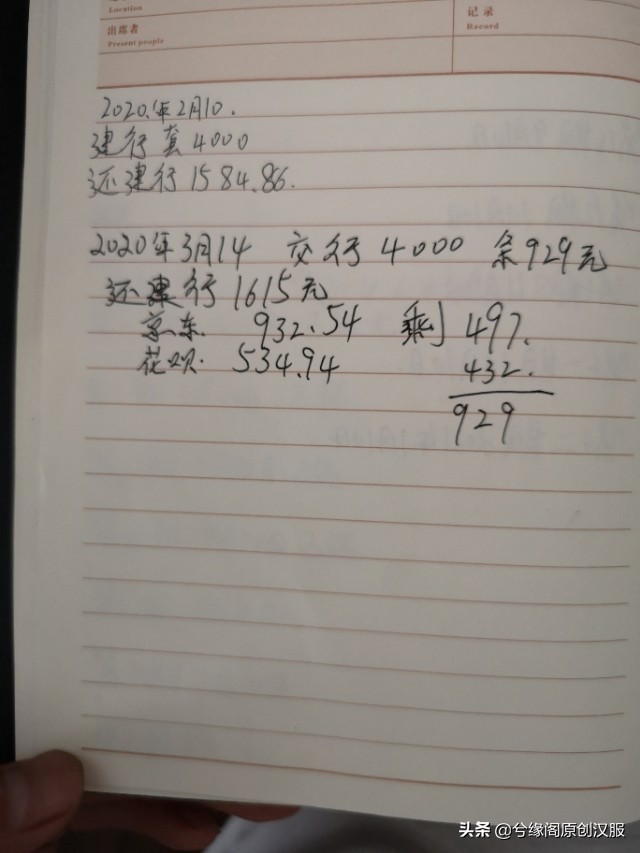 Location
出席者
Present people
记录
Record
2020.年2月10.
建行套4000
还建行1584.86.
2020年3月14 交行4000 余929元
还建行1615元
京东. 932.54 剩497.
花呗. 534.94 432.
929
头条 @兮缘阁原创汉服